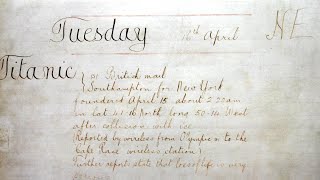 Tuesday 16th April NE
Titanic (s) British mail
(Southampton for New York
foundered April 15 about 2.20am
in lat 41.16 North long 50.14 West
after collision with ice
Reported by wireless from Olympic to the
Cape Race wireless station)
Further report state that loss of life is very